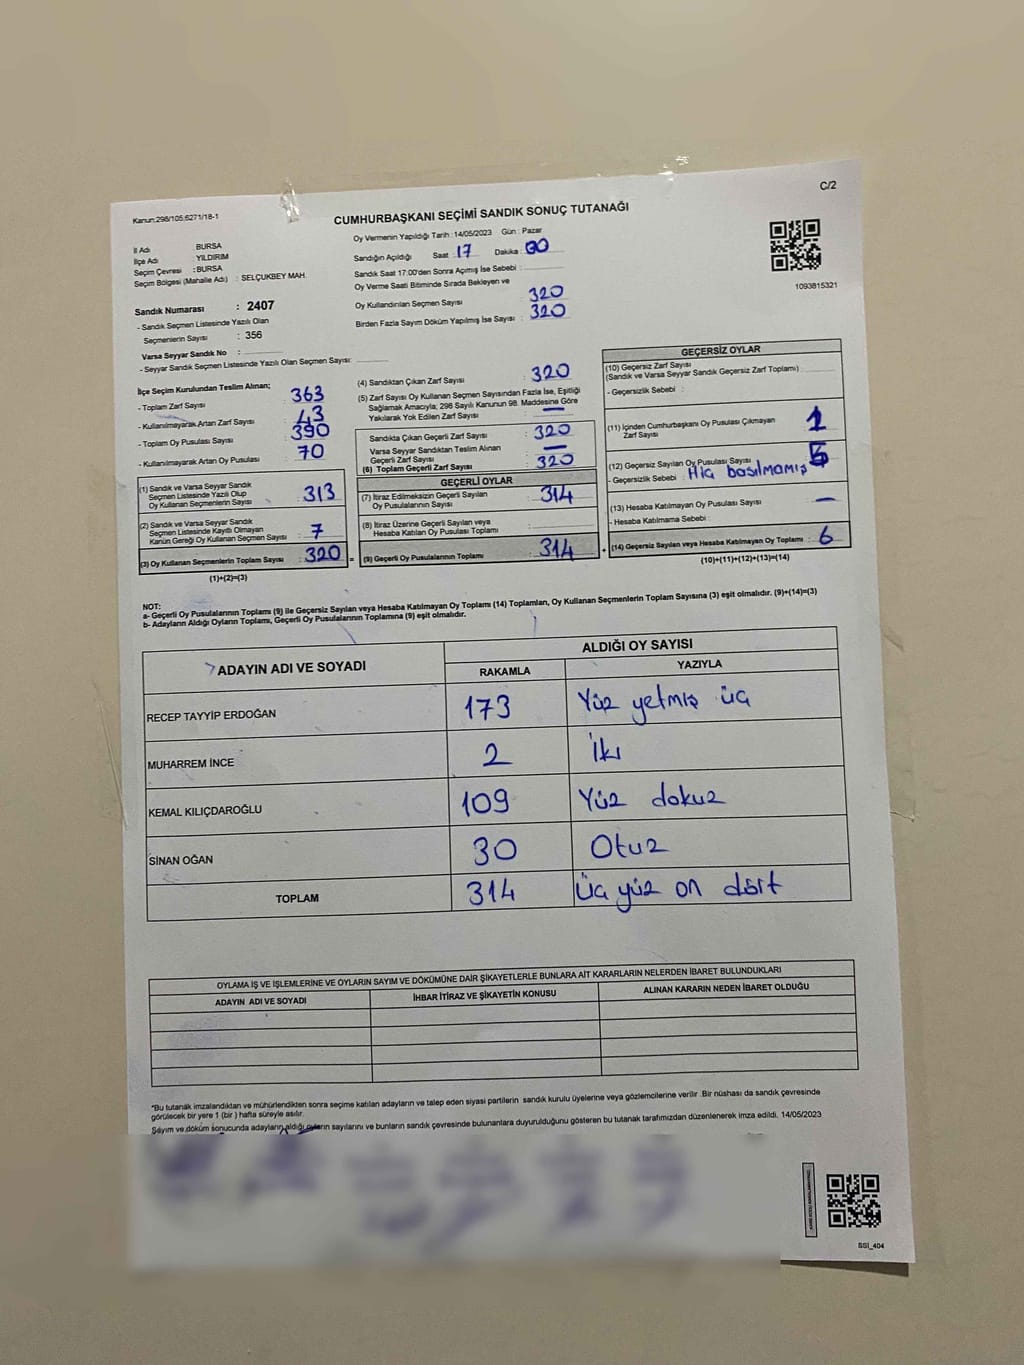 C/2
Kanun:298/105;6271/18-1
CUMHURBAŞKANI SEÇİMİ SANDIK SONUÇ TUTANAĞI
İl Adı : BURSA
İlçe Adı : YILDIRIM
Seçim Çevresi : BURSA
Seçim Bölgesi (Mahalle Adı) : SELÇUKBEY MAH.
Oy Vermenin Yapıldığı Tarih : 14/05/2023 Gün : Pazar
Sandığın Açıldığı Saat 17 Dakika : 00
Sandık Saat 17:00'den Sonra Açmış İse Sebebi :
Oy Verme Saati Bitiminde Sırada Bekleyen ve
Oy Kullandırılan Seçmen Sayısı : 320
Birden Fazla Sayım Döküm Yapılmış İse Sayısı : 320
1093815321
Sandık Numarası : 2407
- Sandık Seçmen Listesinde Yazılı Olan
Seçmenlerin Sayısı : 356
Varsa Seyyar Sandık No :
- Seyyar Sandık Seçmen Listesinde Yazılı Olan Seçmen Sayısı:
İlçe Seçim Kurulundan Teslim Alınan;
- Toplam Zarf Sayısı : 363
- Kullanılmayarak Artan Zarf Sayısı : 43
- Toplam Oy Pusulası Sayısı : 390
- Kullanılmayarak Artan Oy Pusulası : 70
(1) Sandık ve Varsa Seyyar Sandık
Seçmen Listesinde Yazılı Olup
Oy Kullanan Seçmenlerin Sayısı : 313
(2) Sandık ve Varsa Seyyar Sandık
Seçmen Listesinde Kayıtlı Olmayan
Kanun Gereği Oy Kullanan Seçmen Sayısı : 7
(3) Oy Kullanan Seçmenlerin Toplam Sayısı : 320 =
(1)+(2)=(3)
(4) Sandıktan Çıkan Zarf Sayısı : 320
(5) Zarf Sayısı Oy Kullanan Seçmen Sayısından Fazla İse, Eşitliği
Sağlamak Amacıyla, 298 Sayılı Kanunun 98. Maddesine Göre
Yakılarak Yok Edilen Zarf Sayısı : —
Sandıkta Çıkan Geçerli Zarf Sayısı : 320
Varsa Seyyar Sandıktan Teslim Alınan
Geçerli Zarf Sayısı : —
(6) Toplam Geçerli Zarf Sayısı : 320
GEÇERLİ OYLAR
(7) İtiraz Edilmeksizin Geçerli Sayılan
Oy Pusulalarının Sayısı : 314
(8) İtiraz Üzerine Geçerli Sayılan veya
Hesaba Katılan Oy Pusulası Toplamı :
(9) Geçerli Oy Pusulalarının Toplamı : 314 +
GEÇERSİZ OYLAR
(10) Geçersiz Zarf Sayısı
(Sandık ve Varsa Seyyar Sandık Geçersiz Zarf Toplamı) :
- Geçersizlik Sebebi :
(11) İçinden Cumhurbaşkanı Oy Pusulası Çıkmayan
Zarf Sayısı : 1
(12) Geçersiz Sayılan Oy Pusulası Sayısı : 5
- Geçersizlik Sebebi : Hiç basılmamış
(13) Hesaba Katılmayan Oy Pusulası Sayısı : —
- Hesaba Katılmama Sebebi :
(14) Geçersiz Sayılan veya Hesaba Katılmayan Oy Toplamı : 6
(10)+(11)+(12)+(13)=(14)
NOT:
a- Geçerli Oy Pusulalarının Toplamı (9) ile Geçersiz Sayılan veya Hesaba Katılmayan Oy Toplamı (14) Toplamları, Oy Kullanan Seçmenlerin Toplam Sayısına (3) eşit olmalıdır. (9)+(14)=(3)
b- Adayların Aldığı Oyların Toplamı, Geçerli Oy Pusulalarının Toplamına (9) eşit olmalıdır.
ADAYIN ADI VE SOYADI ALDIĞI OY SAYISI
RAKAMLA YAZIYLA
RECEP TAYYİP ERDOĞAN 173 Yüz yetmiş üç
MUHARREM İNCE 2 İki
KEMAL KILIÇDAROĞLU 109 Yüz dokuz
SİNAN OĞAN 30 Otuz
TOPLAM 314 Üç yüz on dört
OYLAMA İŞ VE İŞLEMLERİNE VE OYLARIN SAYIM VE DÖKÜMÜNE DAİR ŞİKAYETLERLE BUNLARA AİT KARARLARIN NELERDEN İBARET BULUNDUKLARI
ADAYIN ADI VE SOYADI İHBAR İTİRAZ VE ŞİKAYETİN KONUSU ALINAN KARARIN NEDEN İBARET OLDUĞU
*Bu tutanak imzalandıktan ve mühürlendikten sonra seçime katılan adayların ve talep eden siyasi partilerin sandık kurulu üyelerine veya gözlemcilerine verilir. Bir nüshası da sandık çevresinde
görülecek bir yere 1 (bir) hafta süreyle asılır.
Sayım ve döküm sonucunda adayların aldığı oyların sayılarını ve bunların sandık çevresinde bulunanlara duyurulduğunu gösteren bu tutanak tarafımızdan düzenlenerek imza edildi. 14/05/2023
SSİ_404